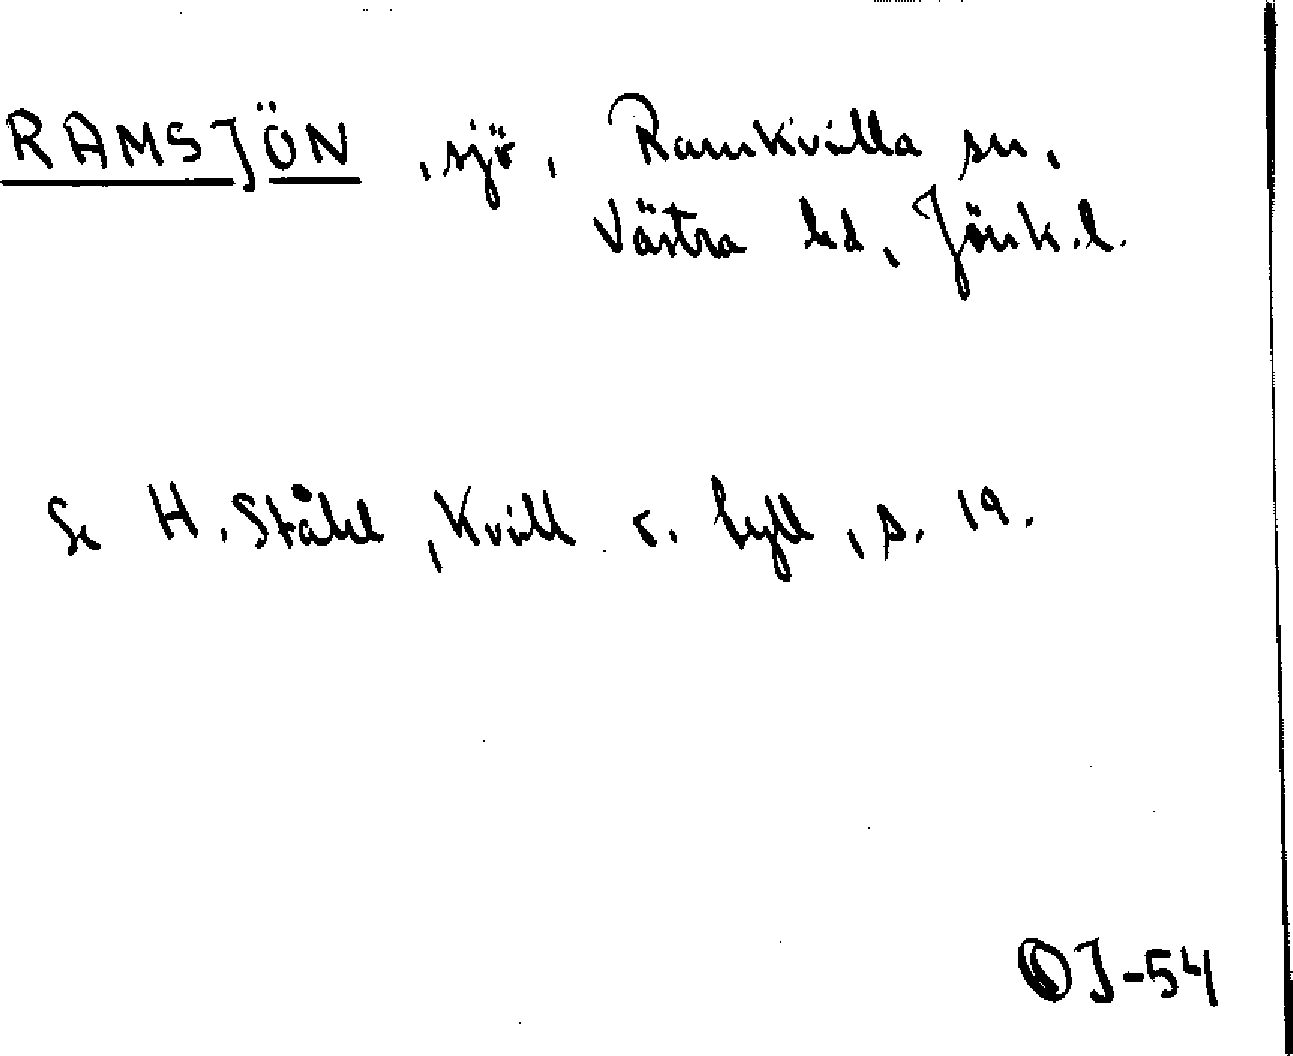 RAMSJÖN, sjö, Ramkvilla sn,
Västra hd, Jönk.l.
Se H. Ståhl, Kvill o. hyll, s. 19.
OJ-54